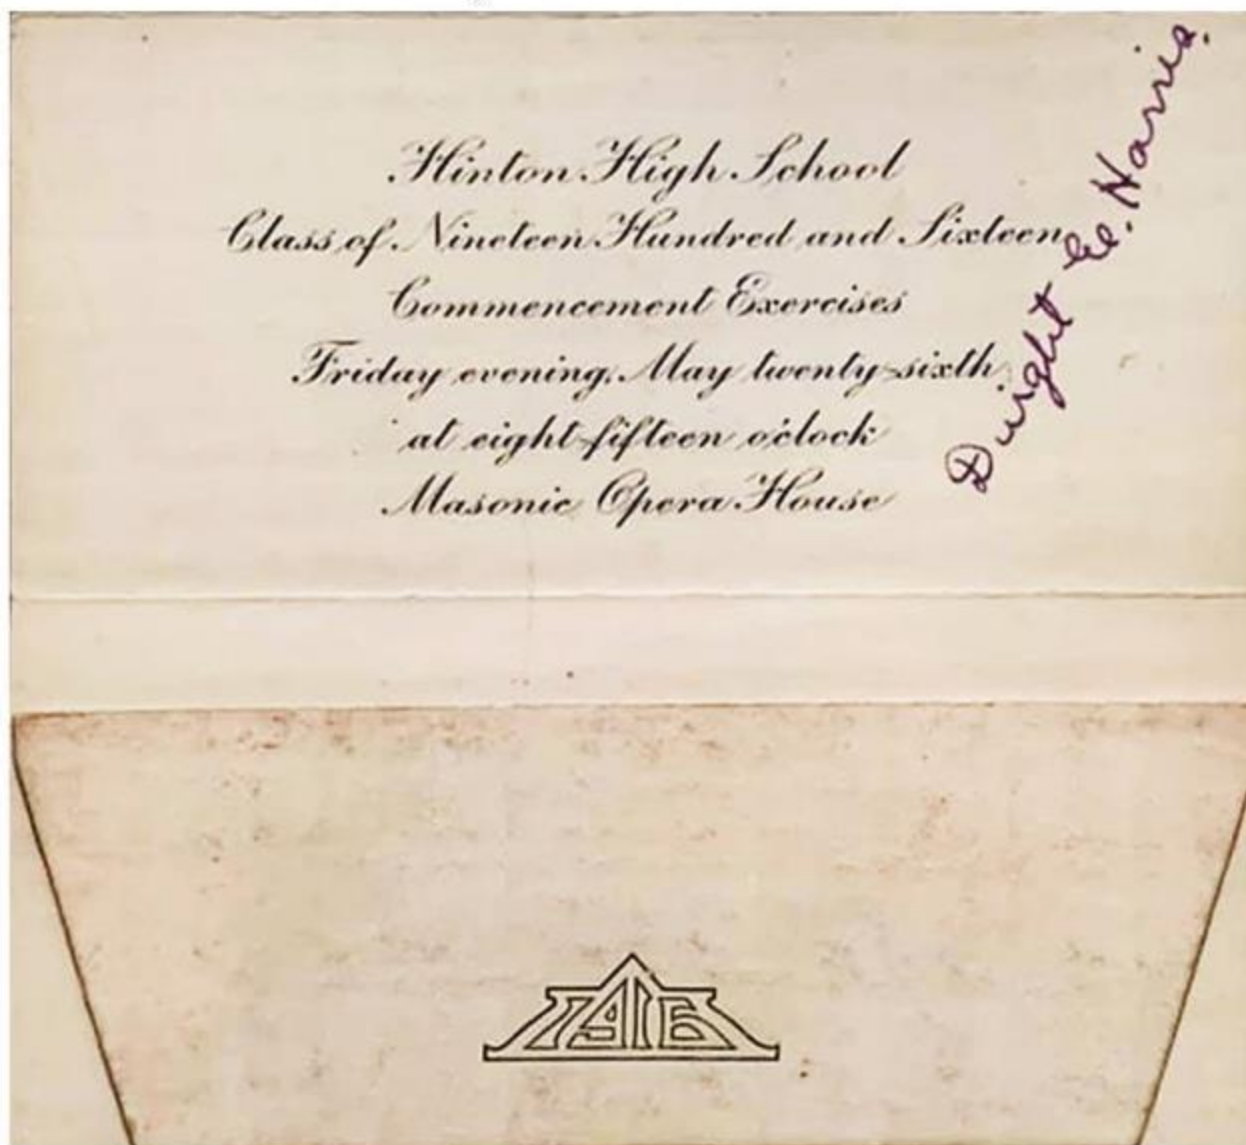 Hinton High School
Class of Nineteen Hundred and Sixteen
Commencement Exercises
Friday evening, May twenty-sixth
at eight-fifteen o'clock
Masonic Opera House
Dwight E. Harris.
1916